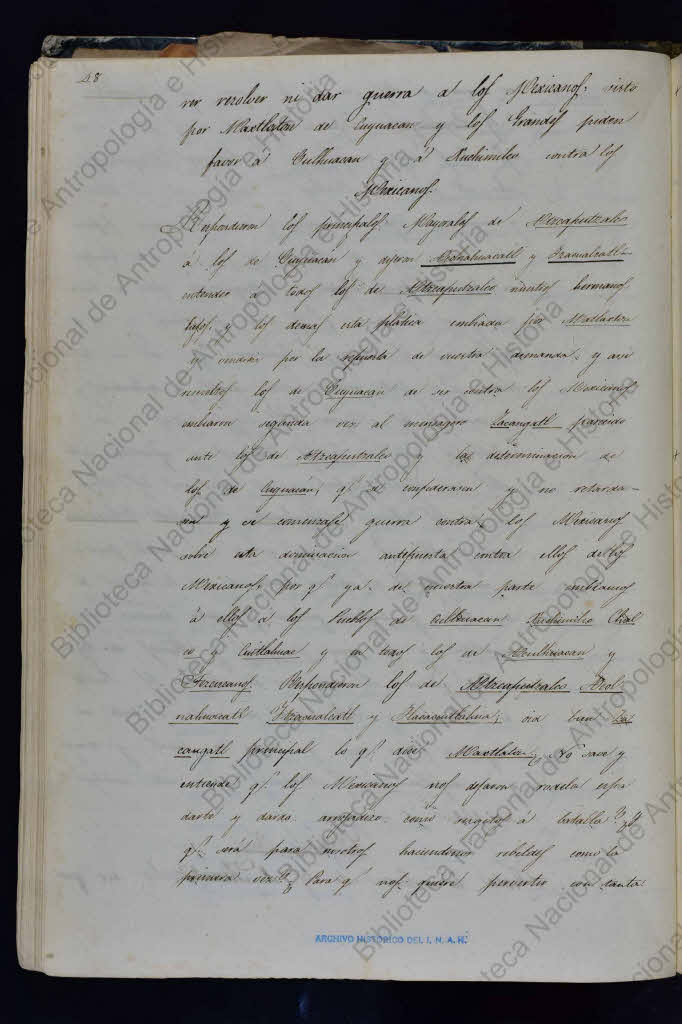 48
ver resolver ni dar guerra á los Mexicanos: visto
por Maxtlaton de Cuyuacan y los Grandes piden
favor á Culhuacan y á Xuchimilco contra los
Mexicanos.
Respondieron los principales Mayorales de Atzcaputzalco
á los de Cuyuacán y dijeron Acolnahuacatl y Tzacualcatl
entender á todos los de Atzcaputzalco nuestros hermanos
y los demas esta plática embiada por Maxtlaton
y vendran por la repuesta de vuestra demanda, y asi
nosotros los de Cuyuacan de ser contra los Mexicanos
embiaron segunda vez al mensagero Zacangatl parecido
ante los de Atzcaputzalco y las determinacion de
los de Cuyuacán, qᵉ se confederasen y no retarda-
sen y se comenzase guerra contra los Mexicanos
sobre esta dominacion antepuesta contra ellos de los
Mexicanos, por qᵉ ya de nuestra parte embiamos
á ellos á los Pueblos de Culhuacan Xuchimilco Chal
co y Cuitlahuac y en todos los de Aculhuacan y
Tezcucanos. Respondieron los de Atzcaputzalco Acol
nahuacatl Tzacualcatl y Tlacacuitlahua; oid bien Za
cangatl principal lo qᵉ dice Maxtlaton, No save y
entiende qᵉ los Mexicanos nos dejaron rodela espa
darte y dardo arrojadizo como sugetos á batalla? y
qᵉ será para nosotros haciendonos rebeldes como la
primera vez? Para qᵉ nos quiere pervertir con tanta
ARCHIVO HISTORICO DEL I. N. A. H.
Biblioteca Nacional de Antropología e Historia